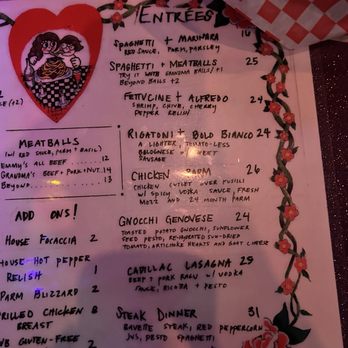 ENTRÉES
SPAGHETTI + MARINARA 16
RED SAUCE, PARM, PARSLEY
SPAGHETTI + MEATBALLS 25
TRY IT WITH GRANDMA BALLS/+1
BEYOND BALLS +2
FETTUCINE + ALFREDO 24
SHRIMP, CHIVE, CHERRY
PEPPER RELISH
RIGATONI + BOLD BIANCO 24
A LIGHTER, TOMATO-LESS
BOLOGNESE + SWEET
SAUSAGE
CHICKEN PARM 26
CHICKEN CUTLET OVER FUSILI
W/ SPICY VODKA SAUCE, FRESH
MOZZ AND 24 MONTH PARM
GNOCCHI GENOVESE 24
TOASTED POTATO GNOCCHI, SUNFLOWER
SEED PESTO, RE-HYDRATED SUN-DRIED
TOMATO, ARTICHOKE HEARTS AND GOAT CHEESE
CADILLAC LASAGNA 29
BEEF + PORK RAGU W/ VODKA
SAUCE, RICOTTA + PESTO
STEAK DINNER 31
BAVETTE STEAK, RED PEPPERCORN
JUS, PESTO SPAGHETTI
(+2)
MEATBALLS
(W/ RED SAUCE, PARM + BASIL)
EMMY'S ALL BEEF ........ 12
GRANDMA'S BEEF + PORK + NUT. 14
BEYOND ........ 13
ADD ONS!
HOUSE FOCACCIA 2
HOUSE HOT PEPPER
RELISH 1
PARM BLIZZARD 2
GRILLED CHICKEN 8
BREAST
SUB GLUTEN-FREE 2